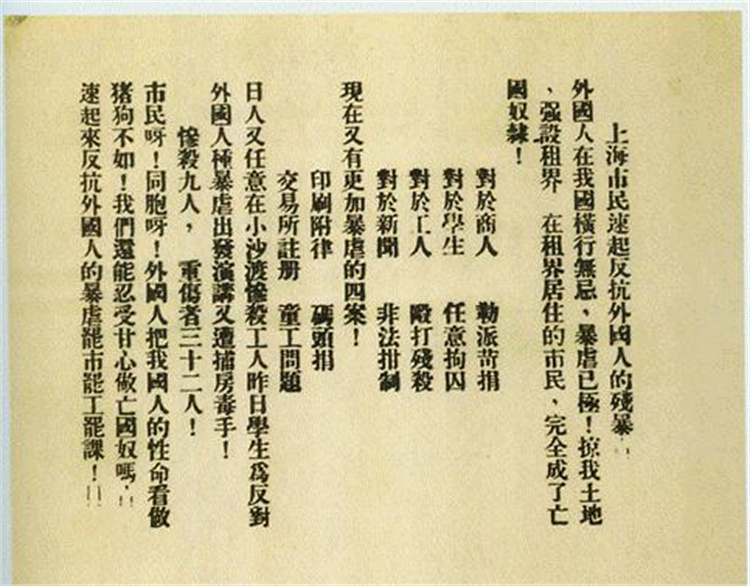 上海市民速起反抗外國人的殘暴!!
外國人在我國橫行無忌、暴虐已極!掠我土地
、强設租界 在租界居住的市民、完全成了亡
國奴隸!
對於商人 勒派苛捐
對於學生 任意拘囚
對於工人 毆打殘殺
對於新聞 非法拑制
現在又有更加暴虐的四案!
印刷附律 碼頭捐
交易所註册 童工問題
日人又任意在小沙渡慘殺工人昨日學生爲反對
外國人種暴虐出發演講又遭捕房毒手!
慘殺九人, 重傷者三十二人!
市民呀!同胞呀!外國人把我國人的性命看做
猪狗不如!我們還能忍受甘心做亡國奴嗎,!!
速起來反抗外國人的暴虐罷市罷工罷課!!!